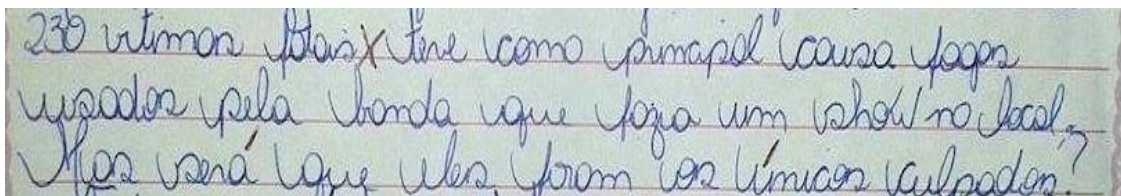 230 vitimas fatais X teve como principal causa fogos
usados pela banda que fazia um show no local.
Mas será que eles foram os únicos culpados?